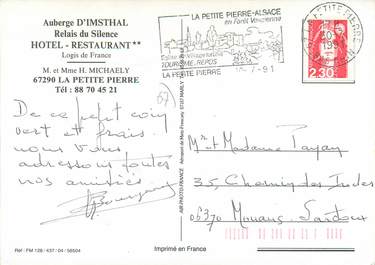 Auberge D'IMSTHAL
Relais du Silence
HOTEL - RESTAURANT**
Logis de France
M. et Mme H. MICHAELY
67290 LA PETITE PIERRE
Tél : 88 70 45 21
(67)
De ce petit coin
vert et frais nous
vous
adressons toutes
nos amitiés
Réf : FM 128 / 437 / 04 / 56504
AIR PHOTO FRANCE
LA PETITE PIERRE-ALSACE
en Forêt Vosgienne
TOURISME, REPOS
LA PETITE PIERRE
2,30
Mr et Madame
35, Chemin des
06370 Mouans-Sartoux
Imprimé en France